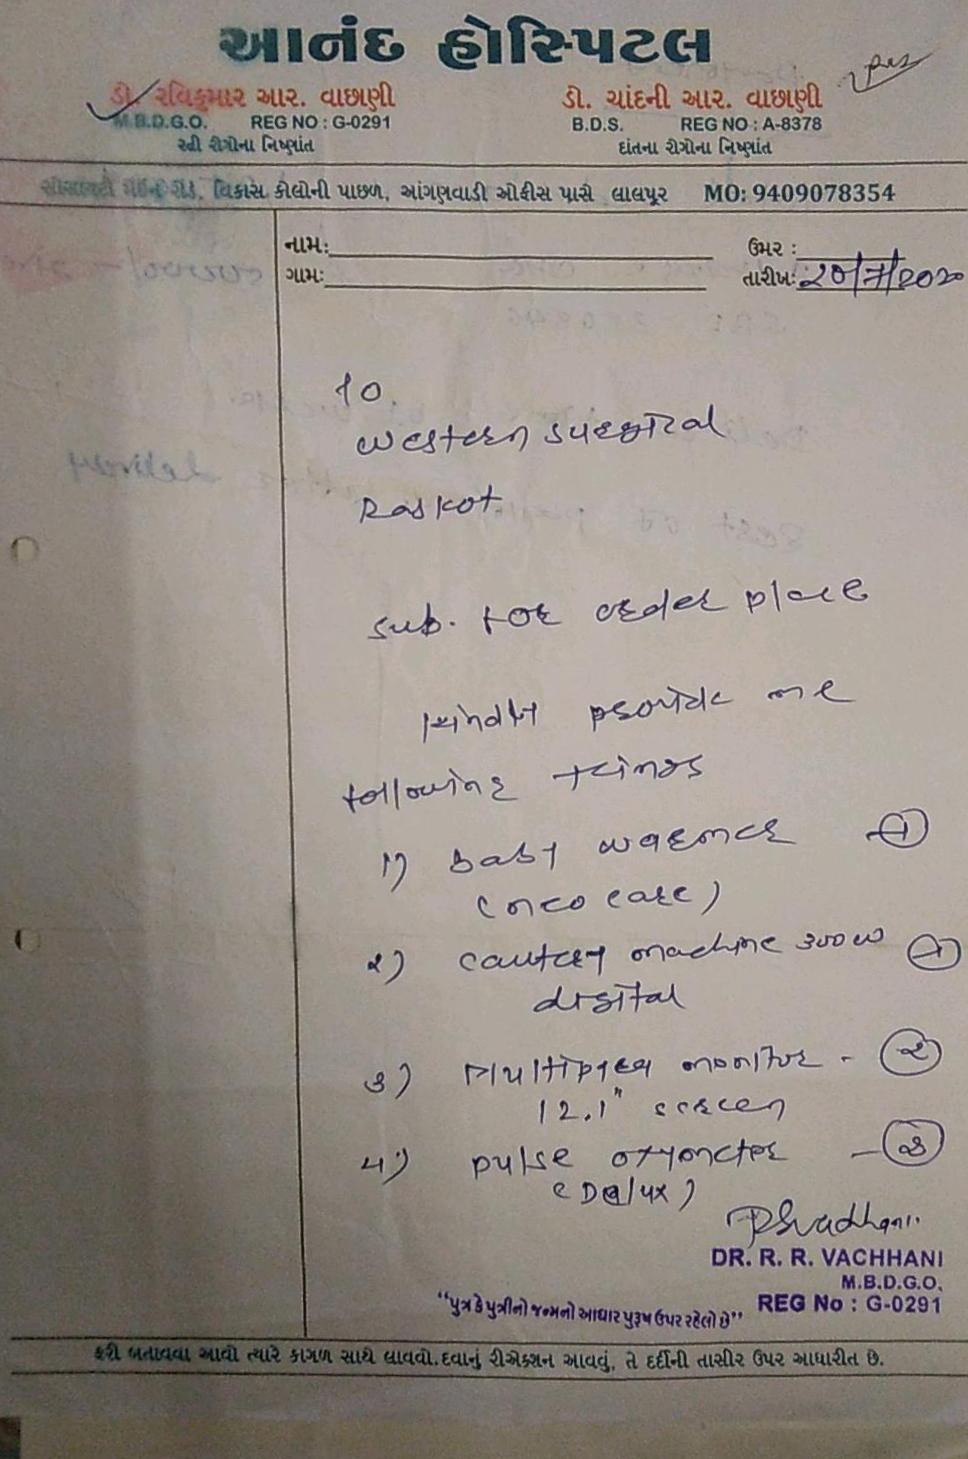 આનંદ હોસ્પિટલ
ડો. રવિકુમાર આર. વાછાણી
M.B.D.G.O. REG NO : G-0291
સ્ત્રી રોગોના નિષ્ણાંત
ડો. ચાંદની આર. વાછાણી
B.D.S. REG NO : A-8378
દાંતના રોગોના નિષ્ણાંત
રોડ, વિકાસ કોલોની પાછળ, આંગણવાડી ઓફીસ પાસે લાલપૂર MO: 9409078354
નામ:
ઉંમર :
ગામ:
તારીખ: ૨૦/7/૨૦૨૦
To.
Western Surgical
Rajkot
Sub. for order place
Kindly provide me
following things
1) Baby warmer - 1
(neo care)
૨) cautery machine ૩૦૦ w - 1
digital
૩) Multipara monitor - ૨
12.1" screen
૪) pulse oxymeter - ૩
(Delux)
DR. R. R. VACHHANI
M.B.D.G.O.
REG No : G-0291
“પુત્ર કે પુત્રીનો જન્મનો આધાર પુરૂષ ઉપર રહેલો છે”
ફરી બતાવવા આવો ત્યારે કાગળ સાથે લાવવો. દવાનું રીએક્શન આવવું, તે દર્દીની તાસીર ઉપર આધારીત છે.